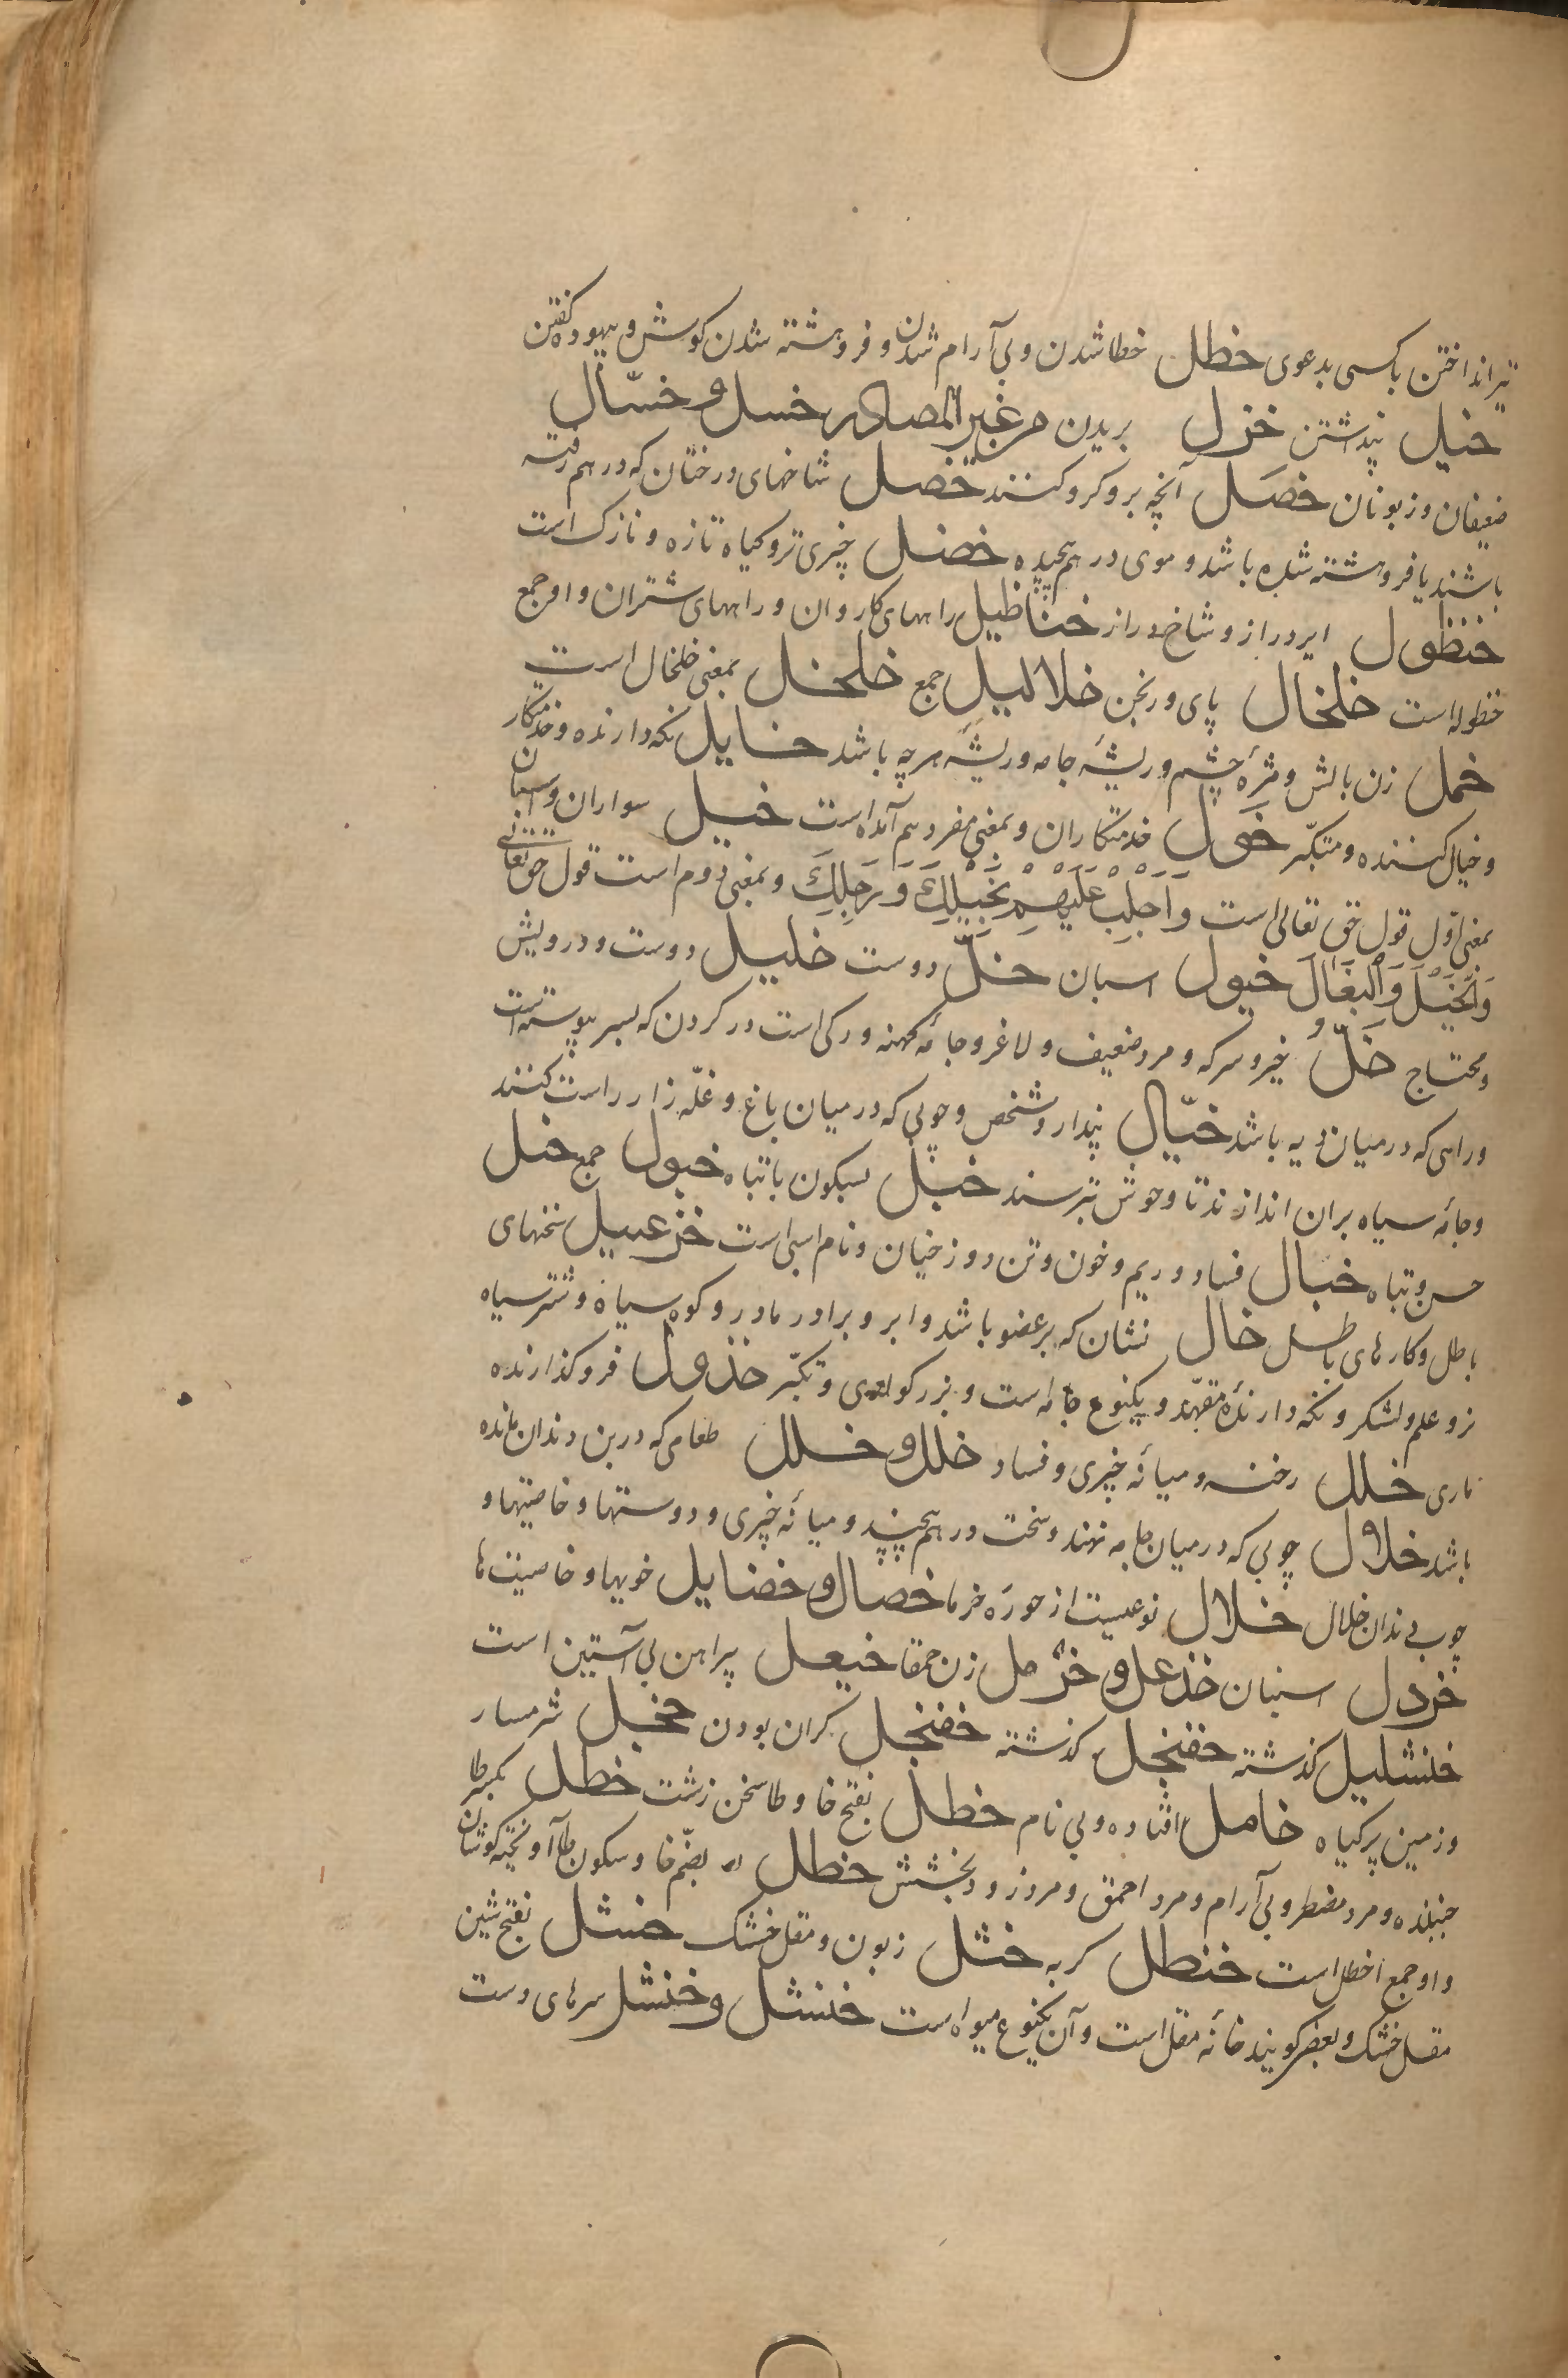 تیر انداختن با کسی بدعوی خطل خطا شدن و بی آرام شدن و فروهشته شدن کوش و بیهوده کفتن
خیل پنداشتن خزل بریدن من غیر المصادر خسل و خسّال
ضعیفان و زبونان خصل آنچه برو کرو کنند خصل شاخهای درختان که در هم رفته
باشند یا فروهشته شده باشد و موی در هم پیچیده خضل چیزی تر و کیاه تازه و نازک است
خنظول ایر دراز و شاخ دراز خناظیل راههای کاروان و راههای شتران و او جمع
خنظوله است خلخال پای ورنجن خلالیل جمع خلخل بمعنی خلخال است
خمل زن بالش و مژۀ چشم و ریشۀ جامه و ریشۀ هرچه باشد خایل نکه دارنده و خدمتکار
و خیال کننده و متکبّر خول خدمتکاران و بمعنی مفرد هم آمده است خیل سواران و اسبان
بمعنی اوّل قول حق تعالی است وَاَجْلِبْ عَلَیْهِمْ بِخَیْلِكَ وَرَجِلِكَ و بمعنی دوم است قول حق تعالی
وَالْخَیْلَ وَالْبِغَالَ خیول اسبان خلّ دوست خلیل دوست و درویش
و محتاج خلّ خیر و سرکه و مرد ضعیف و لاغر و جامۀ کهنه و رکی است در کردن که بسر پیوسته است
و راهی که در میان ریه باشد خیّال پندار و شخص و چوبی که در میان باغ و غلّه زار راست کنند
و جامۀ سیاه بران اندازند تا وحوش بترسند خبل بسکون با تباه خبول جمع خبل
حسن و تباه خبال فساد و ریم و خون و تن دوزخیان و نام اسبی است خزعبیل سخنهای
باطل و کارهای باطل خال نشان که بر عضو باشد و ابر و برادر مادر و کوه سیاه و شتر سیاه
نر و علم و لشکر و نکه دارنده متعهّد و یکنوع جامه است و بزرکواری و تکبّر خذول فروکذارنده
یاری خلل رخنه و میانۀ چیزی و فساد خلل و خلل طعامی که در بن دندان مانده
باشد خلال چوبی که در میان جامه نهند و سخت در هم پیچند و میانۀ چیزی و دوستیها و خاصیتها و
چوب دندان خلال خلال نوعیست از حورۀ خرما خصال و خضایل خویها و خاصیت ها
خردل اسپنان خذعل و خرمل زن حمقا خیعل پیراهن بی آستین است
خنشلیل کذشته خفنجل کذشته خفنجل کران بودن خجل شرمسار
و زمین پر کیاه خامل افتاده و بی نام خطل بفتح خا و طا سخن زشت خطل بکسر طا
جنبنده و مرد مضطر و بی آرام و مرد احمق و مرد زود بخشش خطل بضمّ خا و سکون طا آویخته کوشان
و او جمع اخطل است خنطل کربه خثل زبون و مقل خشک خشل بفتح شین
مقل خشک و بعضی کویند خانۀ مقل است و آن یکنوع میوه است خنشل و خنشل سرهای دست